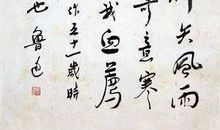 矢風雨
寄意寒
我血薦
作五十一歲時
也 魯迅